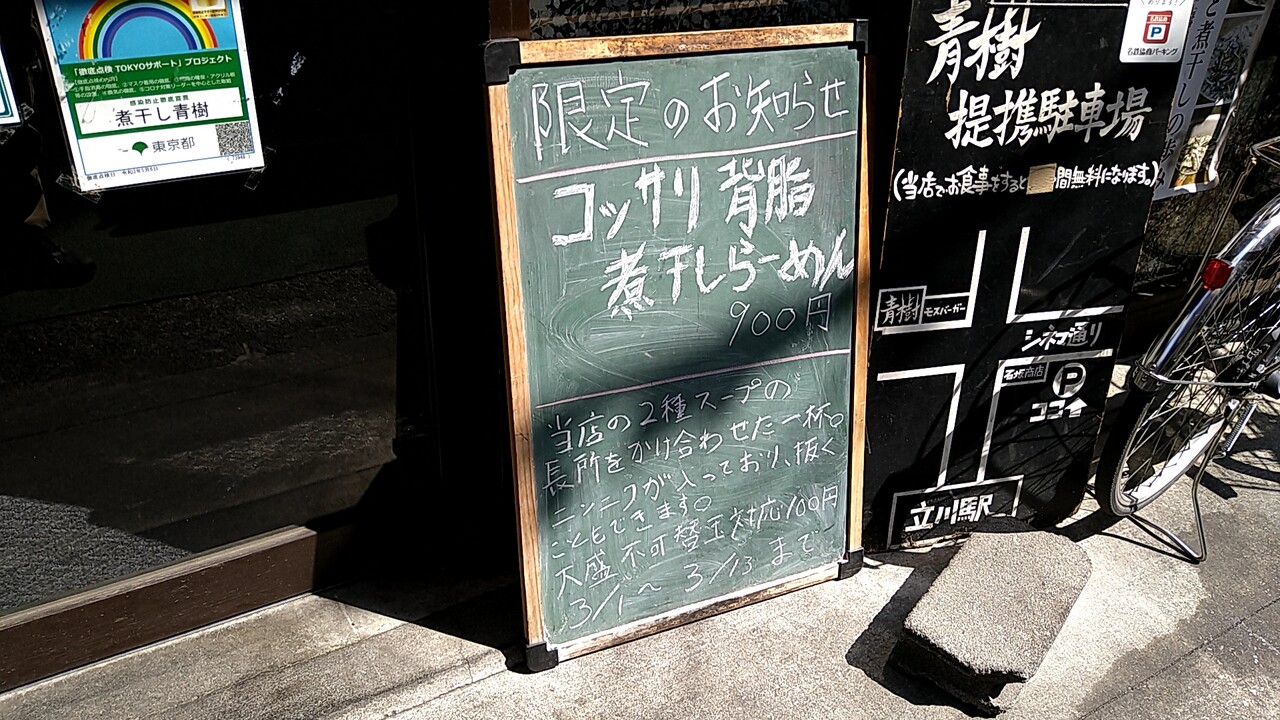 「徹底点検 TOKYOサポート」プロジェクト
感染防止徹底宣言
煮干し青樹
東京都
限定のお知らせ
コッサリ背脂
煮干しらーめん
900円
当店の2種スープの
長所をかけ合わせた一杯。
ニンニクが入っており、抜く
こともできます。
大盛不可替玉対応100円
3/1〜3/13まで
青樹
提携駐車場
(当店でお食事をすると 間無料になります。)
P
名鉄協商パーキング
青樹
モスバーガー
シネマ通り
P
ココ
立川駅
と煮干しの